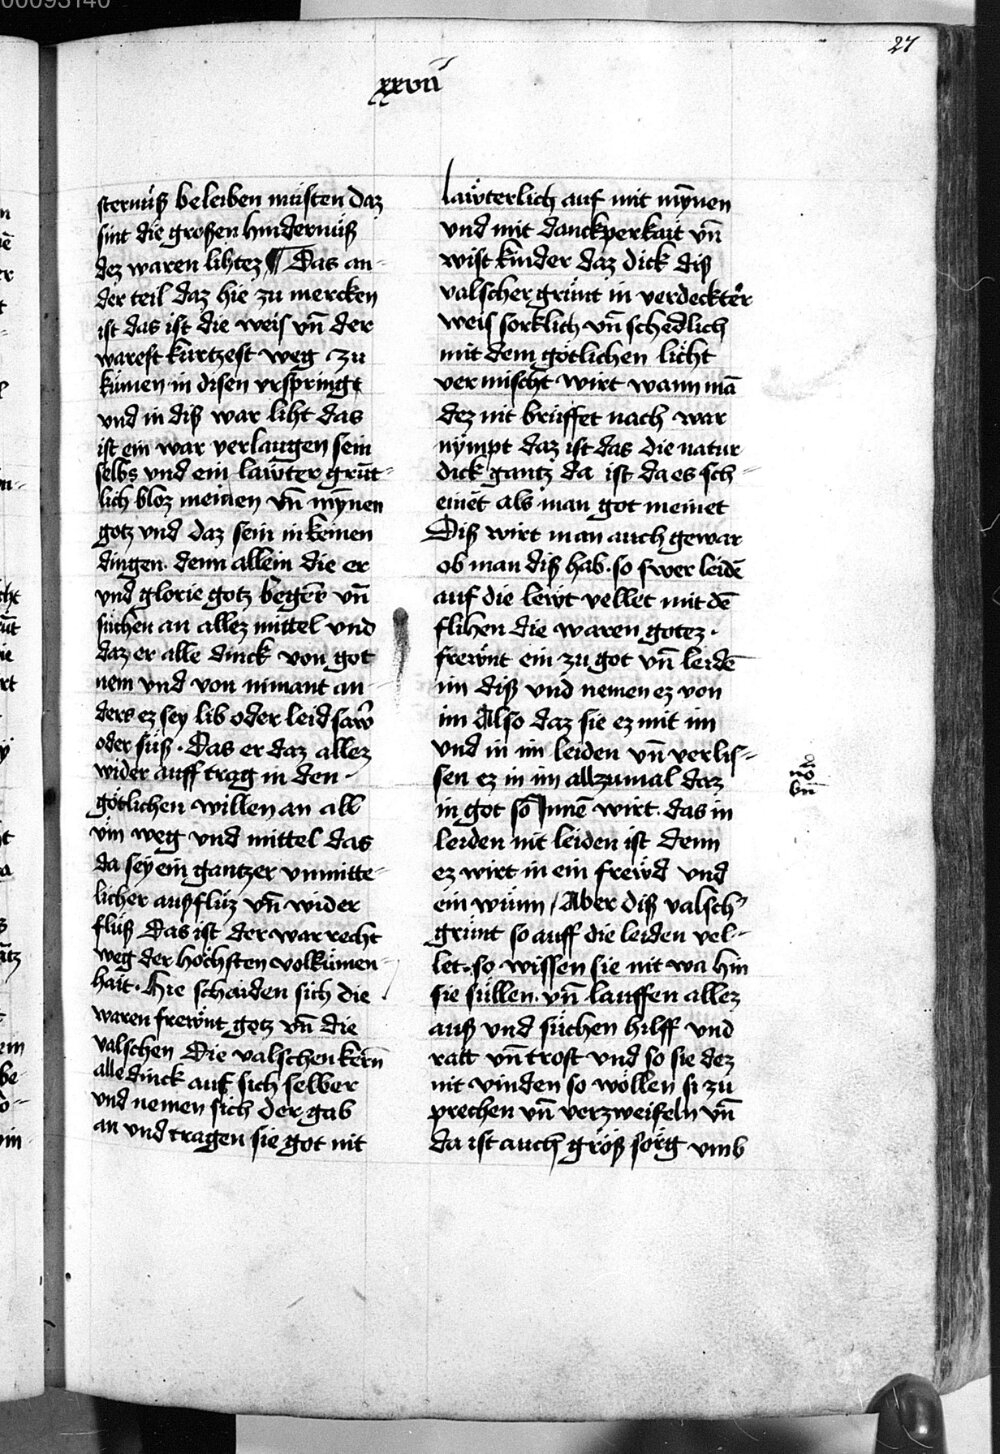 00093140
27
xxvii
sternüß beleiben müsten daz
sint die großen hindernüß
dez waren lihtez ¶ Das an-
der teil daz hie zu mercken
ist das ist die weis vn̄ der
warest kürtzest weg zu
kümen in disen vrspringk
vnd in diß war liht das
ist ein war verlaugen sein
selbs vnd ein laẅter grüt-
lich bloz meinen vn̄ mỹnen
gotz vnd daz sein in keinen
dingen. denn allein die er
vnd glorie gotz begern vn̄
süchen an allez mittel vnd
daz er alle dinck von got
nem vnd von nimant an-
ders ez sey lib oder leid saẅr
oder süß. Das er daz allez
wider auff trag in den
götlichen willen an all
vm weg vnd mittel das
da sey ein gantzer vnmitte-
licher außfluz vn̄ wider
fluß Das ist der war recht
weg der höchsten volkümen-
hait. Hie schaiden sich die
waren freẅnt gotz vn̄ die
valschen Die valschen kern̄
alle dinck auf sich selber
vnd nemen sich der gab
an vnd tragen sie got nit
laẅterlich auf mit mỹnen
vnd mit danckperkait vn̄
wist kinder daz dick diß
valscher grünt in verdeckter
weis sorklich vn̄ schedlich
mit dem götlichen licht
vermischt wirt wann mā
dez nit brüffet nach war
nÿmpt daz ist das die natur
dick gantz da ist da es sch-
einēt als man got meinet
Diß wirt man auch gewar
ob man diß hab. so swer leidē
auf die leẅt vellet mit dē
flihen die waren gotez.
freẅnt ein zu got vn̄ leidē
im diß vnd nemen ez von
im Also daz sie ez mit im
vnd in im leiden vn̄ verlis-
sen ez in im allzumal daz
in got so Innē wirt. das in
leiden nit leiden ist denn
ez wirt in ein freẅd vnd
ein wünn / Aber diß valsch
grünt so auff die leiden vel-
let. so wissen sie nit wa hin
sie süllen. vn̄ lauffen allez
auß vnd süchen hilff vnd
ratt vn̄ trost vnd so sie dez
nit vinden so wöllen si zu
prechen vn̄ verzweifeln vn̄
da ist auch größ sorg vmb